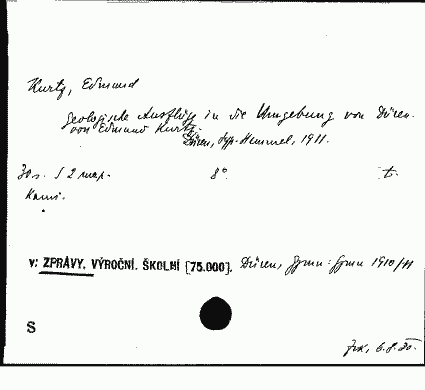 Kurtz, Edmund
Geologische Ausflüge in die Umgebung von Düren.
von Edmund Kurtz.
Düren, typ. Hemmel, 1911.
30 s. S 2 map. 8° t.
v: ZPRÁVY, VÝROČNÍ. ŠKOLNÍ [75.000]. Düren, Gymn: Gymn 1910/11
S